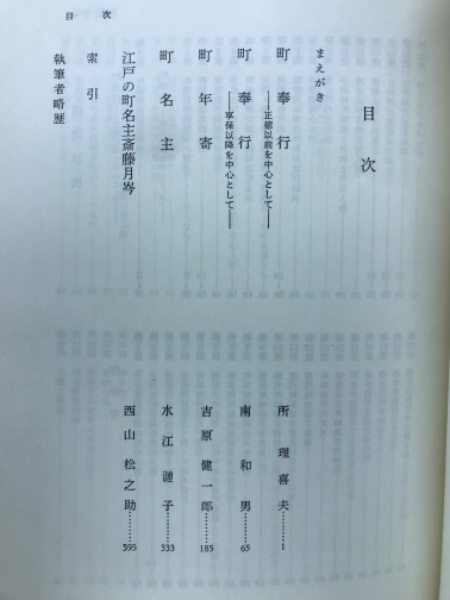 目次
目次
まえがき
町奉行
――正徳以前を中心として――
所理喜夫………1
町奉行
――享保以降を中心として――
南和男………65
町年寄
吉原健一郎………185
町名主
水江漣子………333
江戸の町名主斎藤月岑
西山松之助………395
索引
執筆者略歴